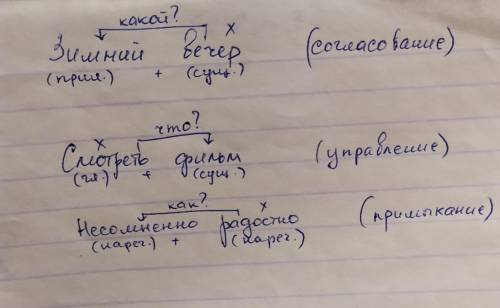 какой?
х
Зимний вечер (согласование)
(прил.) + (сущ.)
что?
х
Смотреть фильм (управление)
(гл.) + (сущ.)
как?
х
Несомненно радостно (примыкание)
(нареч.) + (нареч.)